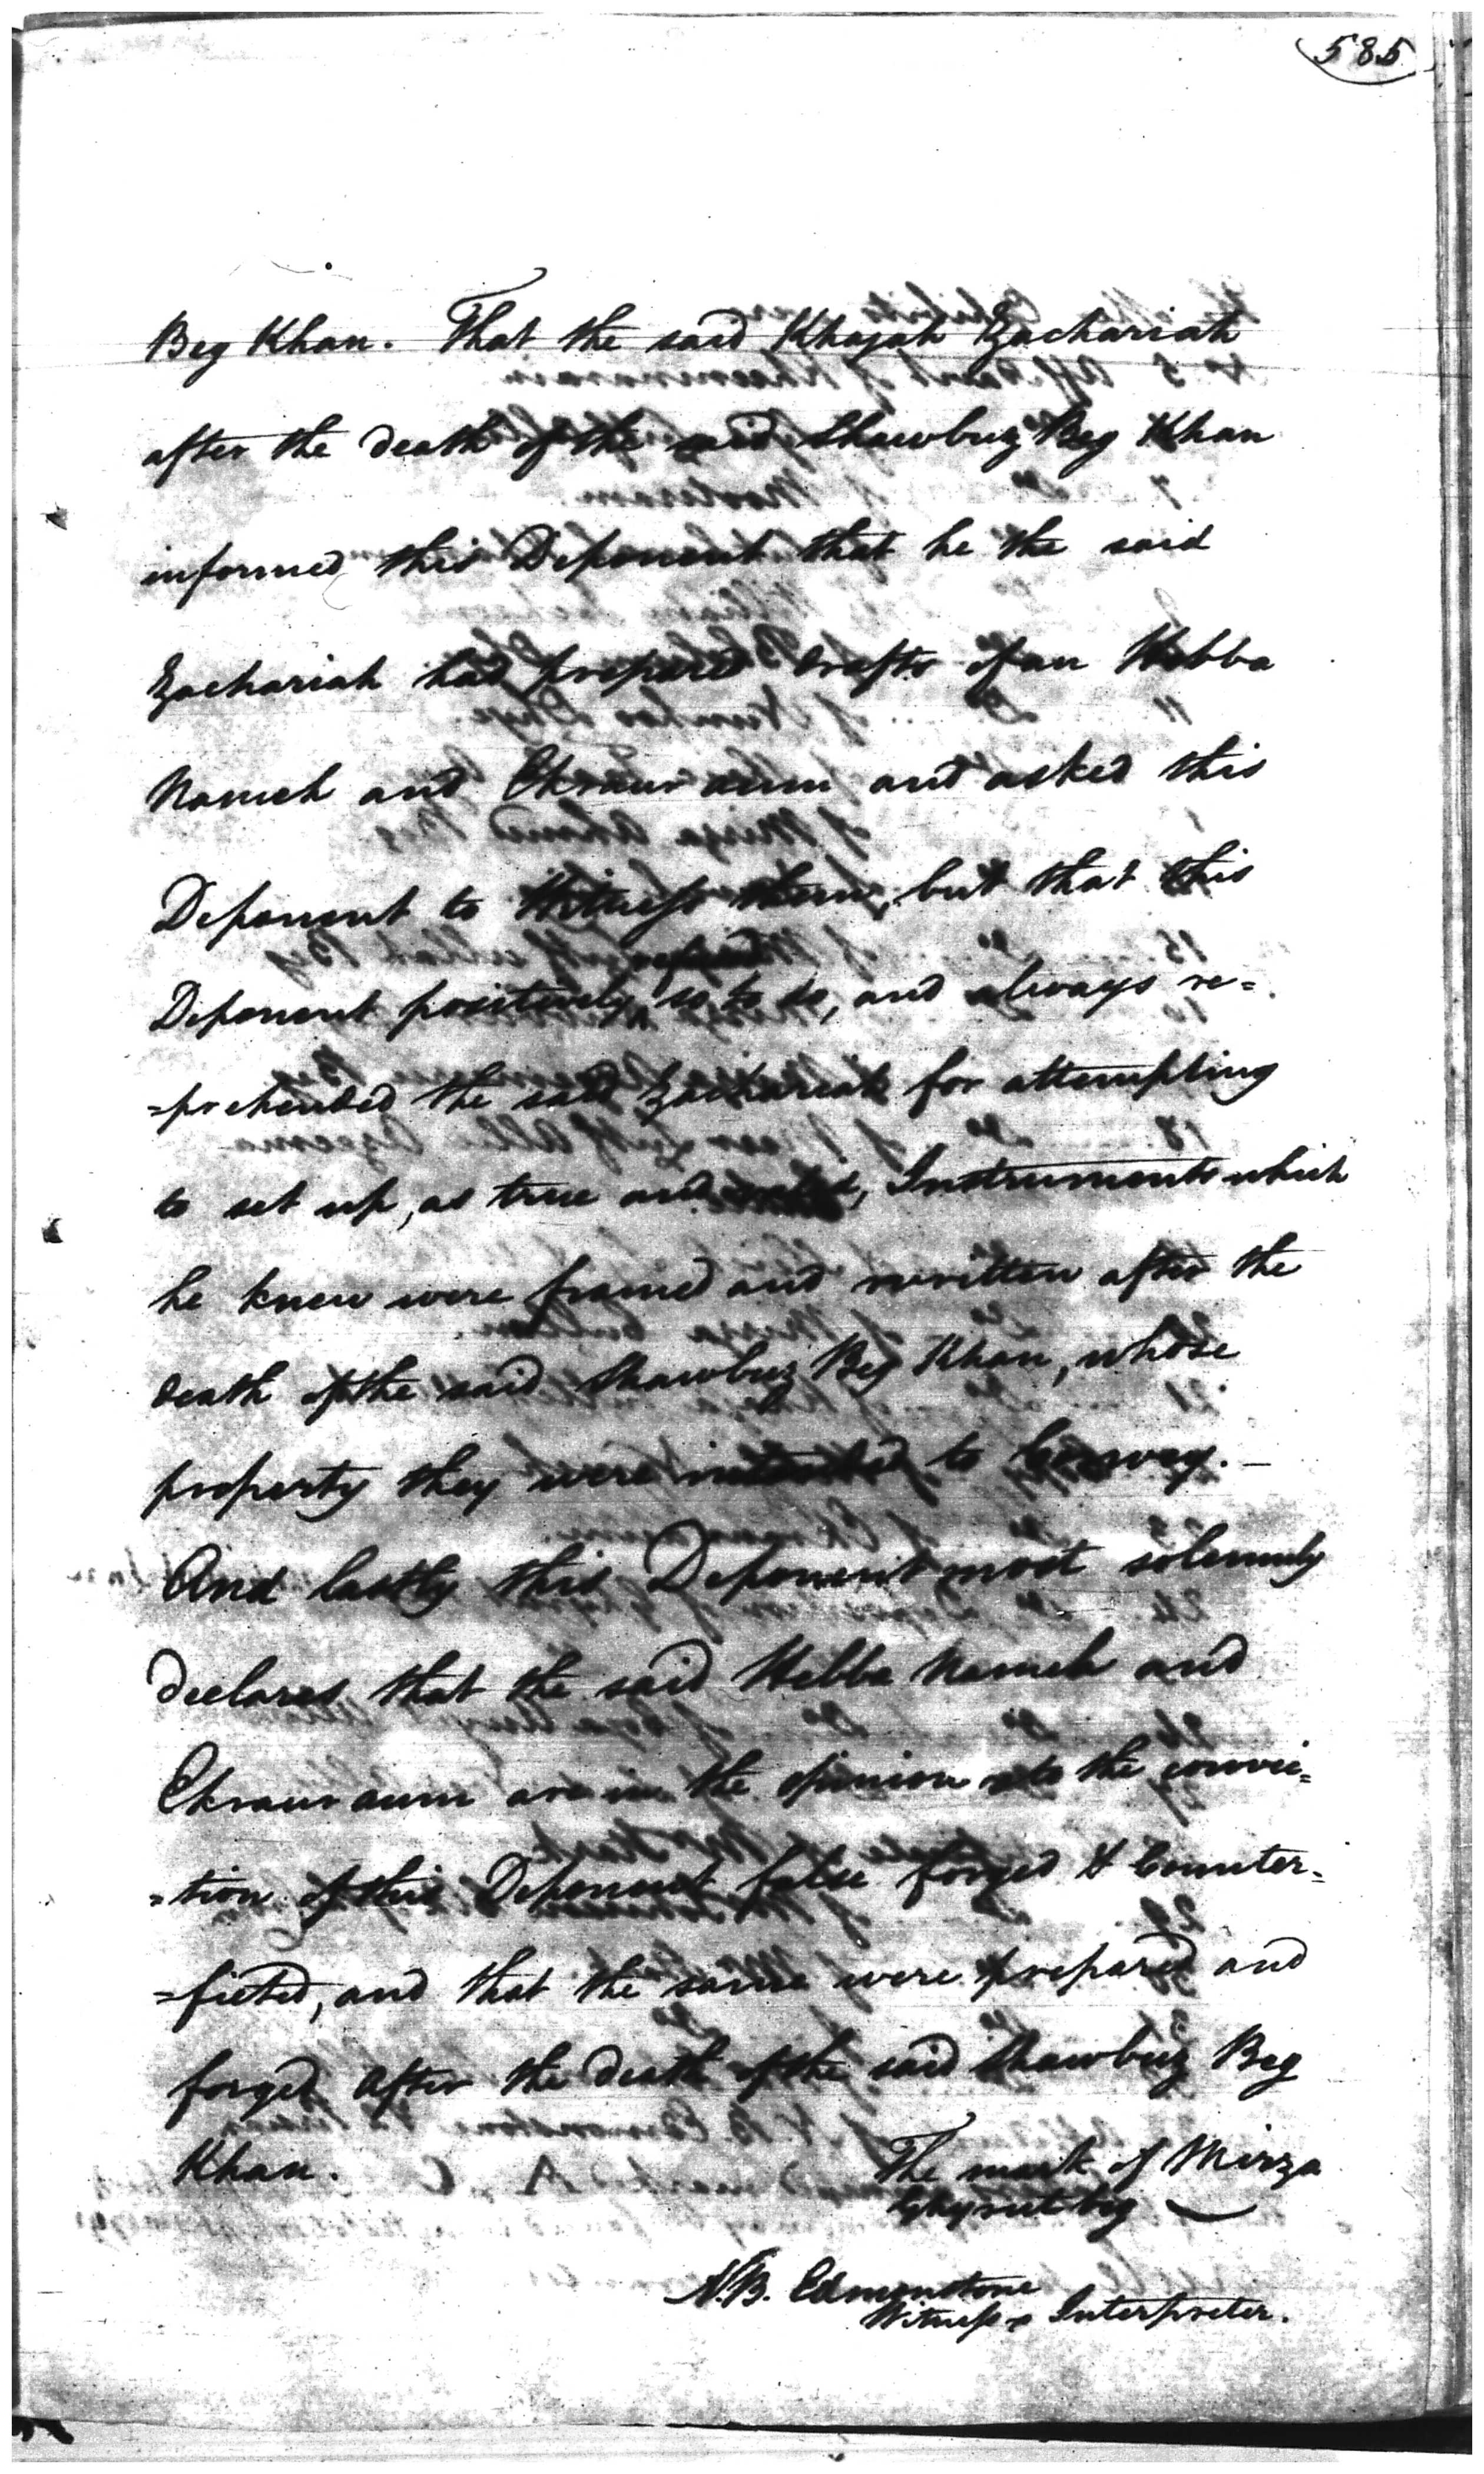 585
Beg Khan. That the said Khojah Zachariah
after the death of the said Shawbuz Beg Khan
informed this Deponent that he the said
Zachariah had prepared drafts of an Hebba
Nameh and Ekraur aum and asked this
Deponent to Witness them, but that this
refused
Deponent positively so to do, and always re=
=prehended the said Zachariah for attempting
to set up, as true and, Instruments which
he knew were framed and written after the
death of the said Shawbuz Beg Khan, whose
property they were intended to Convey. —
And lastly this Deponent most solemnly
declares that the said Hebba Nameh and
Ekraur aum are in the opinion the convic=
=tion of this Deponent false forged & Counter=
=fieted, and that the same were prepared and
forged after the death of the said Shawbuz Beg
Khan.
The mark of Mirza
beg
N.B. Edmonstone
Witness Interpreter.